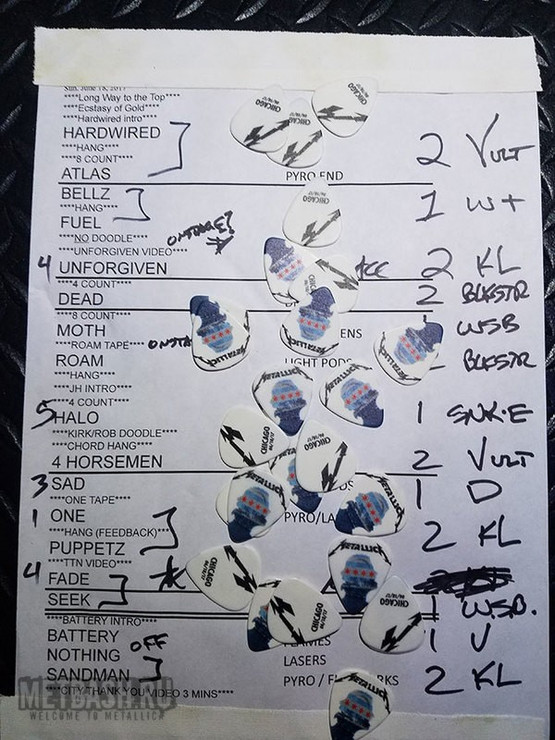 Sun, June 18, 2017
****Long Way to the Top****
****Ecstasy of Gold****
****Hardwired intro****
HARDWIRED
****HANG****
****8 COUNT****
ATLAS PYRO END
2 VULT
BELLZ
****HANG****
FUEL
1 W+
****NO DOODLE****
****UNFORGIVEN VIDEO****
4 UNFORGIVEN 2 KL
****4 COUNT****
DEAD 2 BLKSTR
****8 COUNT****
MOTH WSB
****ROAM TAPE****
ROAM LIGHT PODS BLKSTR
****HANG****
****JH INTRO****
****4 COUNT****
5 HALO 1 SNK·E
****KIRK/ROB DOODLE****
****CHORD HANG****
4 HORSEMEN 2 VULT
3 SAD 1 D
****ONE TAPE****
1 ONE PYRO/LA
****HANG (FEEDBACK)****
PUPPETZ 2 KL
****TTN VIDEO****
4 FADE
SEEK 1 W.S.B.
****BATTERY INTRO****
BATTERY 1 V
NOTHING OFF LASERS
SANDMAN PYRO / F RKS 2 KL
****CITY THANK YOU VIDEO 3 MINS****
CHICAGO
METALLICA
METBASH.RU
WELCOME TO METALLIC